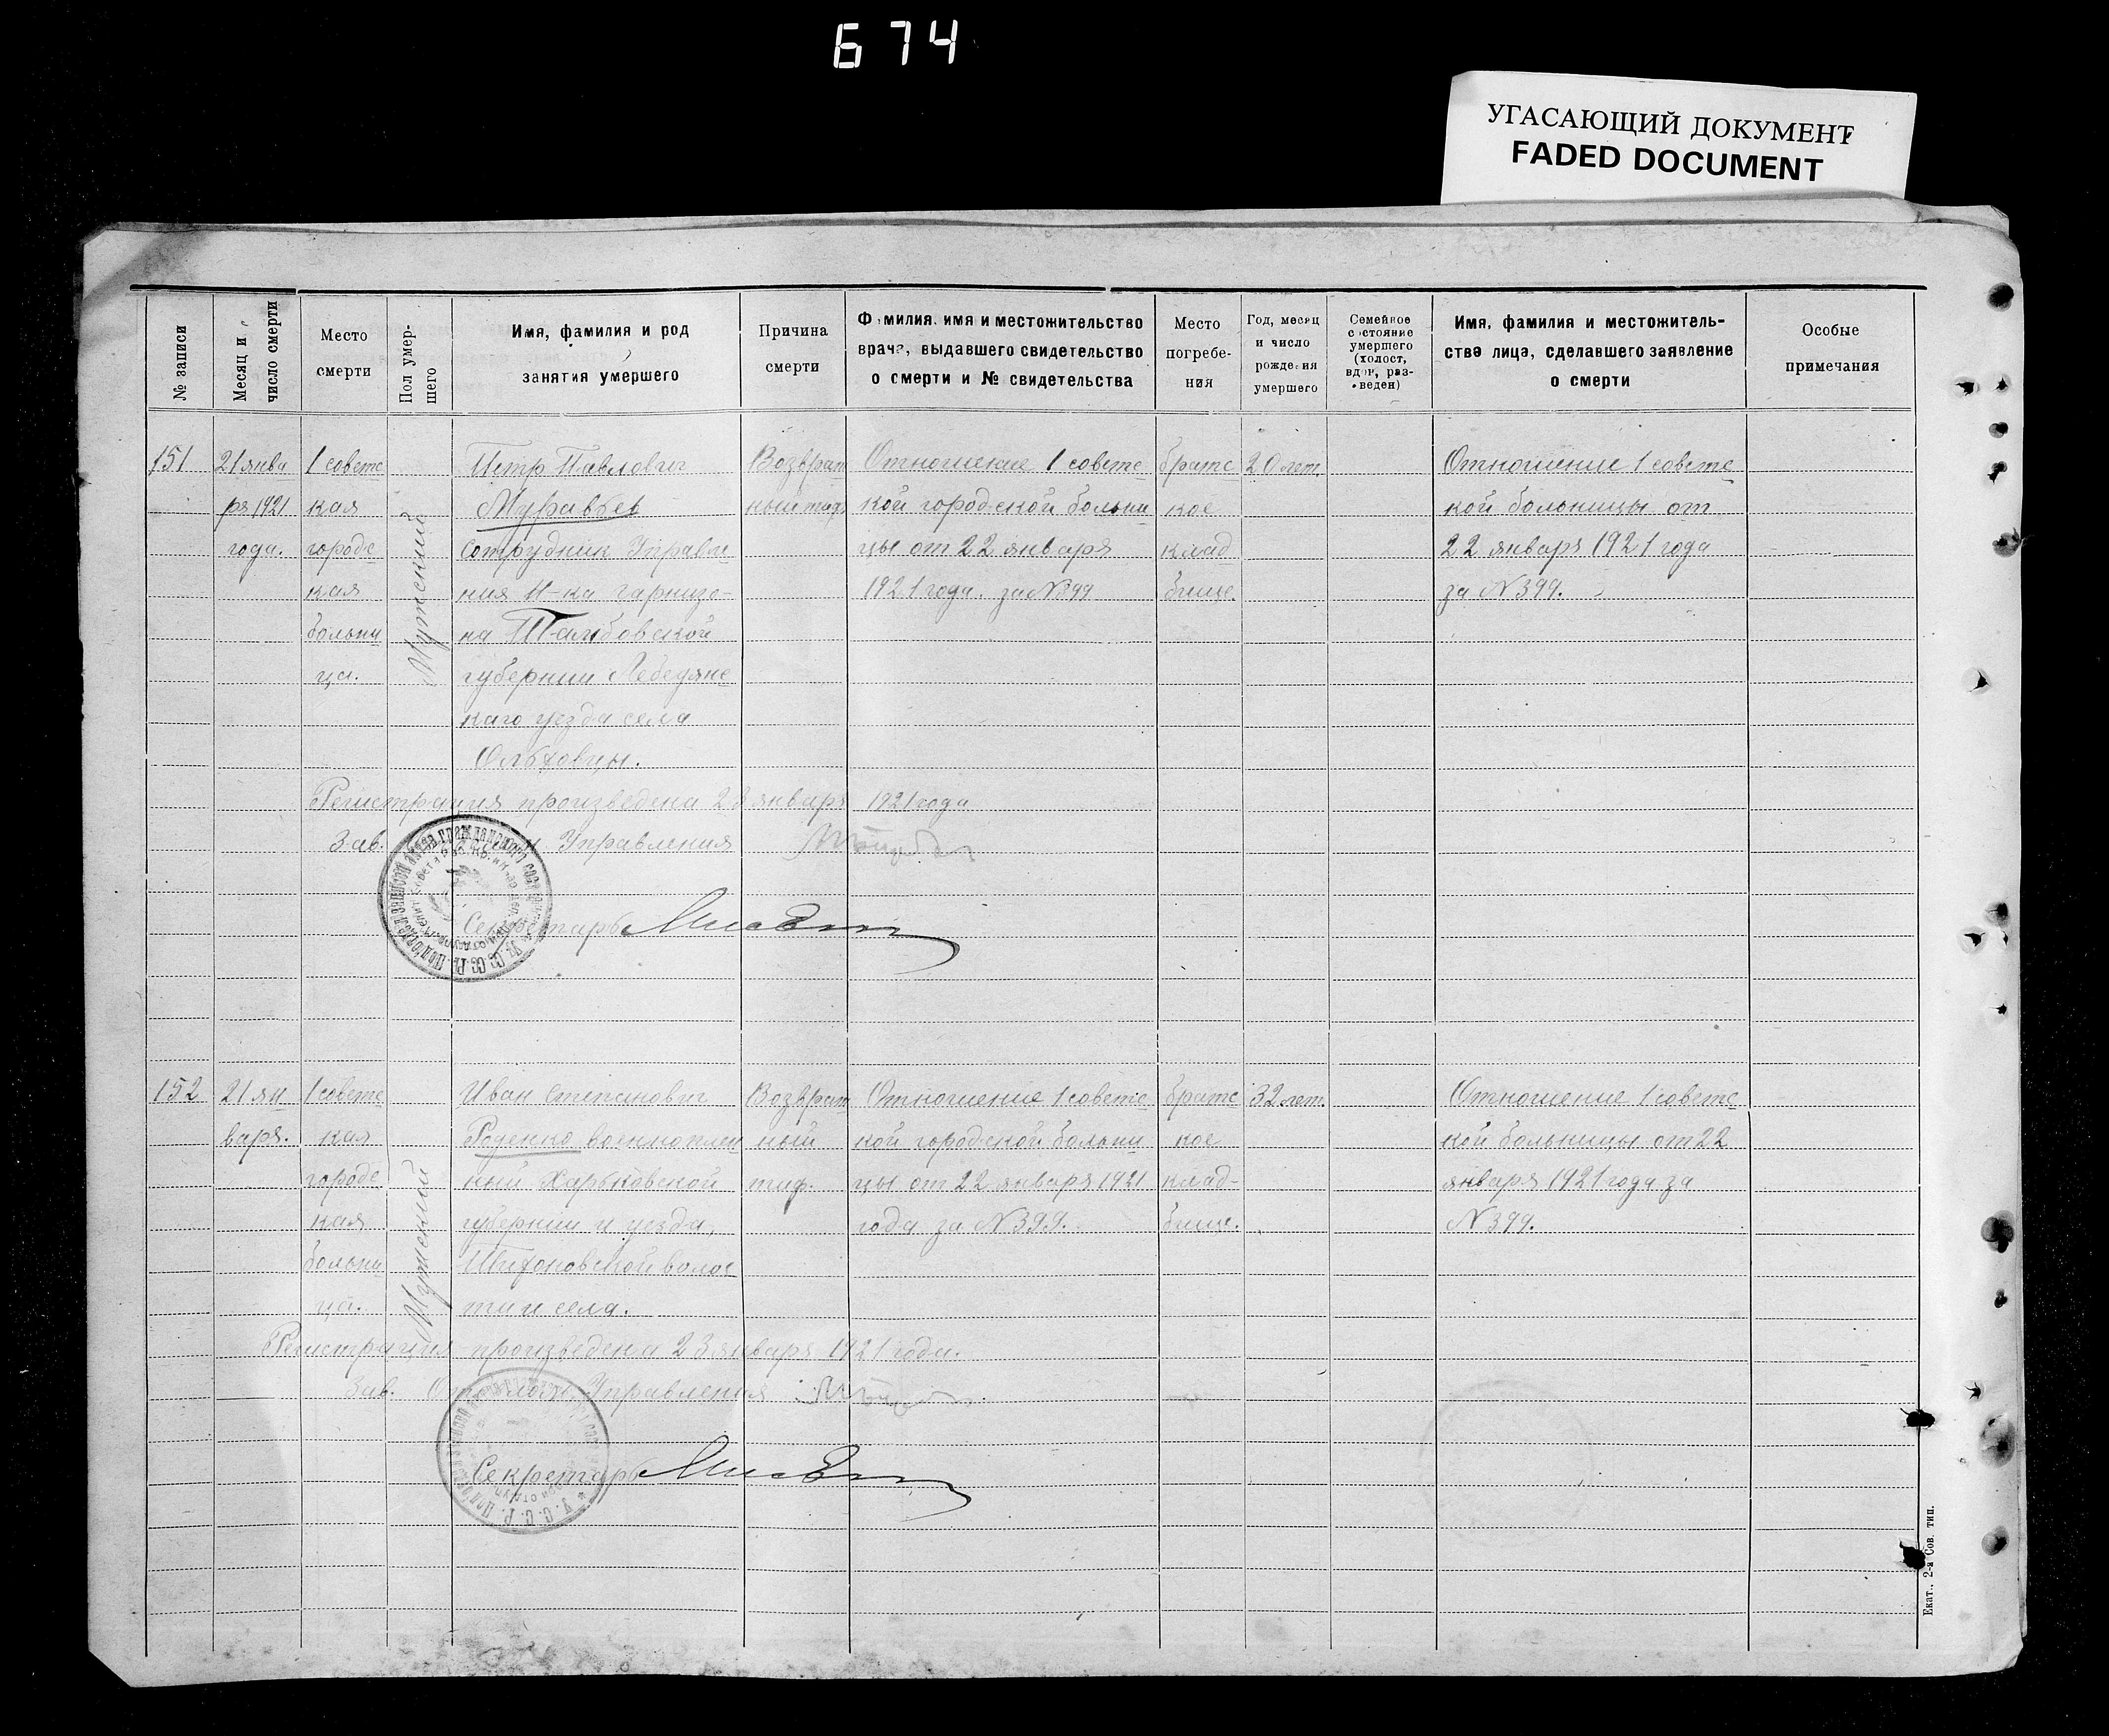 674
УГАСАЮЩИЙ ДОКУМЕНТ
FADED DOCUMENT
№ записи
Месяц и
число смерти
Место
смерти
Пол умер-
шего
Имя, фамилия и род
занятия умершего
Причина
смерти
Фамилия, имя и местожительство
врача, выдавшего свидетельство
о смерти и № свидетельства
Место
погребе-
ния
Год, месяц
и число
рождения
умершего
Семейное
состояние
умершего
(холост,
вдов, раз-
веден)
Имя, фамилия и местожитель-
ство лица, сделавшего заявление
о смерти
Особые
примечания
151
21 янва
ря 1921
года.
1 советс
кая
городс
кая
больни
ца.
Мужской
Петр Павлович
Муравьев
сотрудник Управле
ния Н-ка гарнизо-
на Тамбовской
губернии Лебедянс
каго уезда села
Ольховцы.
Возврат
ный тиф
Отношение 1 советс
кой городской больни
цы от 22 января
1921 года. за N 399
братс
кое
клад
бище.
20 лет
Отношение 1 советс
кой больницы от
22 января 1921 года
за N 399.
Регистрация произведена 23 января 1921 года
Зав. Управления
Секретарь
152
21 ян
варя.
1 советс
кая
городс
кая
больни
ца.
Мужской
Иван Степанович
военноплен
ный Харьковской
губернии и уезда,
волос
ти и села.
Возврат
ный
тиф.
Отношение 1 советс
кой городской больни
цы от 22 января 1921
года за N 399.
братс
кое
клад-
бище.
32 лет.
Отношение 1 советс
кой больницы от 22
января 1921 года за
N 399.
Регистрация произведена 23 января 1921 года.
Зав. Управления
Секретарь
У. С. С. Р.
Екат., 2-я Сов. тип.